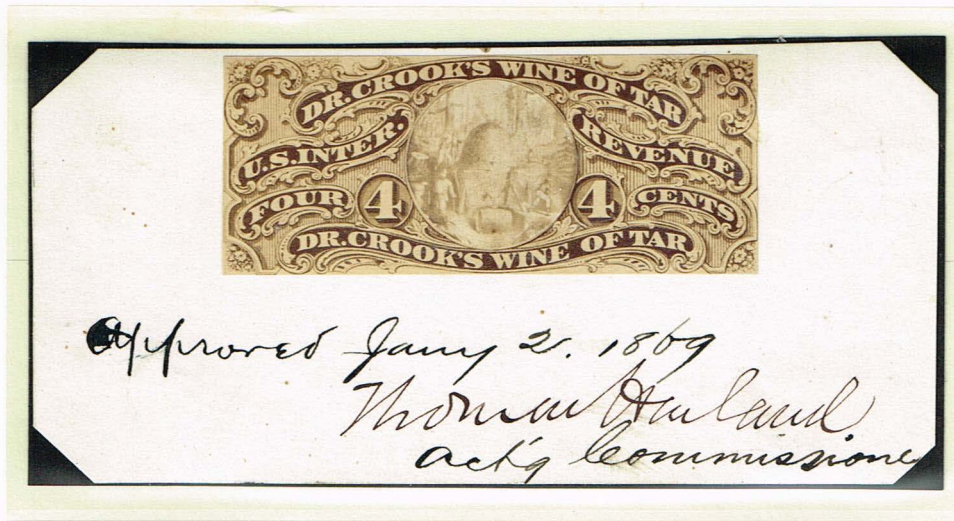 DR. CROOK'S WINE OF TAR
U.S. INTER. REVENUE
FOUR 4 4 CENTS
DR. CROOK'S WINE OF TAR
Approved Jany 2. 1869
Thomas Harland
Act'g Commissioner